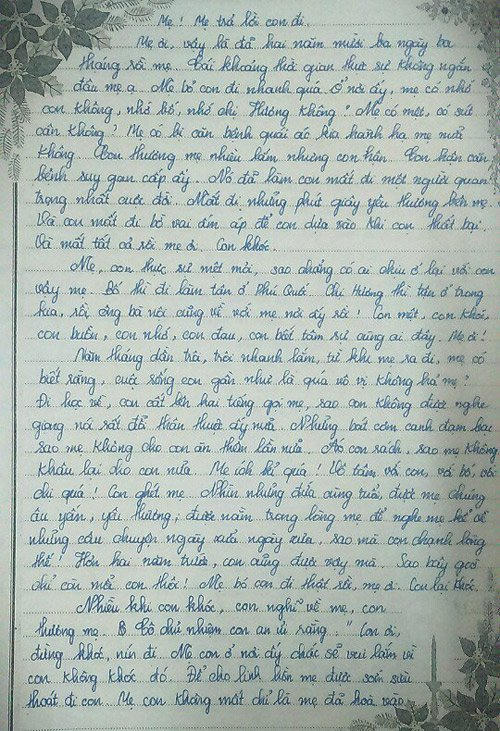 Mẹ! Mẹ trả lời con đi.
Mẹ ơi, vậy là đã hai năm mười ba ngày ba
tháng rồi mẹ. Cái khoảng thời gian thực sự không ngắn
đâu mẹ ạ. Mẹ bỏ con đi nhanh quá. Ở nơi ấy, mẹ có nhớ
con không, nhớ bố, nhớ chị Hương không? Mẹ có mệt, có sút
cân không? Mẹ có bị căn bệnh quái ác kia hành hạ mẹ nữa
không. Con thương mẹ nhiều lắm nhưng con hận. Con hận căn
bệnh suy gan cấp ấy. Nó đã làm con mất đi một người quan
trọng nhất cuộc đời. Mất đi những phút giây yêu thương bên mẹ.
Và con mất đi bờ vai ấm áp để con dựa vào khi con thất bại.
Và mất tất cả rồi mẹ ơi. Con khóc.
Mẹ, con thực sự mệt mỏi, sao chẳng có ai chịu ở lại với con
vậy mẹ. Bố thì đi làm tận ở Phú Quới. Chị Hương thì tận ở trong
kia, rồi ông bà nội cũng về với mẹ nơi ấy rồi! Con mệt, con khóc,
con buồn, con nhớ, con đau, con biết tâm sự cùng ai đây. Mẹ ơi!
Năm tháng dần trôi, trôi nhanh lắm, từ khi mẹ ra đi, mẹ có
biết rằng, cuộc sống con gần như là quá vô vị không hả mẹ?
Đi học về, con cất lên hai tiếng gọi mẹ, sao con không được nghe
giọng nói rất đỗi thân thuộc ấy nữa. Những bữa cơm canh đạm bạc
sao mẹ không cho con ăn thêm lần nữa. Áo con rách, sao mẹ không
khâu lại cho con nữa. Mẹ ích kỉ quá! Vô tâm với con, với bố, với
chị quá! Con ghét mẹ. Nhìn những đứa cùng tuổi, được mẹ chúng
âu yếm, yêu thương; được nằm trong lòng mẹ để nghe mẹ kể về
những câu chuyện ngày xửa ngày xưa, sao mà con chạnh lòng
thế! Hơn hai năm trước, con cũng được vậy mà. Sao bây giờ
chỉ còn mỗi con thôi! Mẹ bỏ con đi thật rồi, mẹ ơi. Con lại khóc.
Nhiều khi con khóc, con nghĩ về mẹ, con
thương mẹ. Cô chủ nhiệm con an ủi rằng: " Con ơi,
đừng khóc, nín đi. Mẹ con ở nơi ấy chắc sẽ vui lắm vì
con không khóc đó. Để cho linh hồn mẹ được sớm siêu
thoát đi con. Mẹ con không mất chỉ là mẹ đã hoà vào